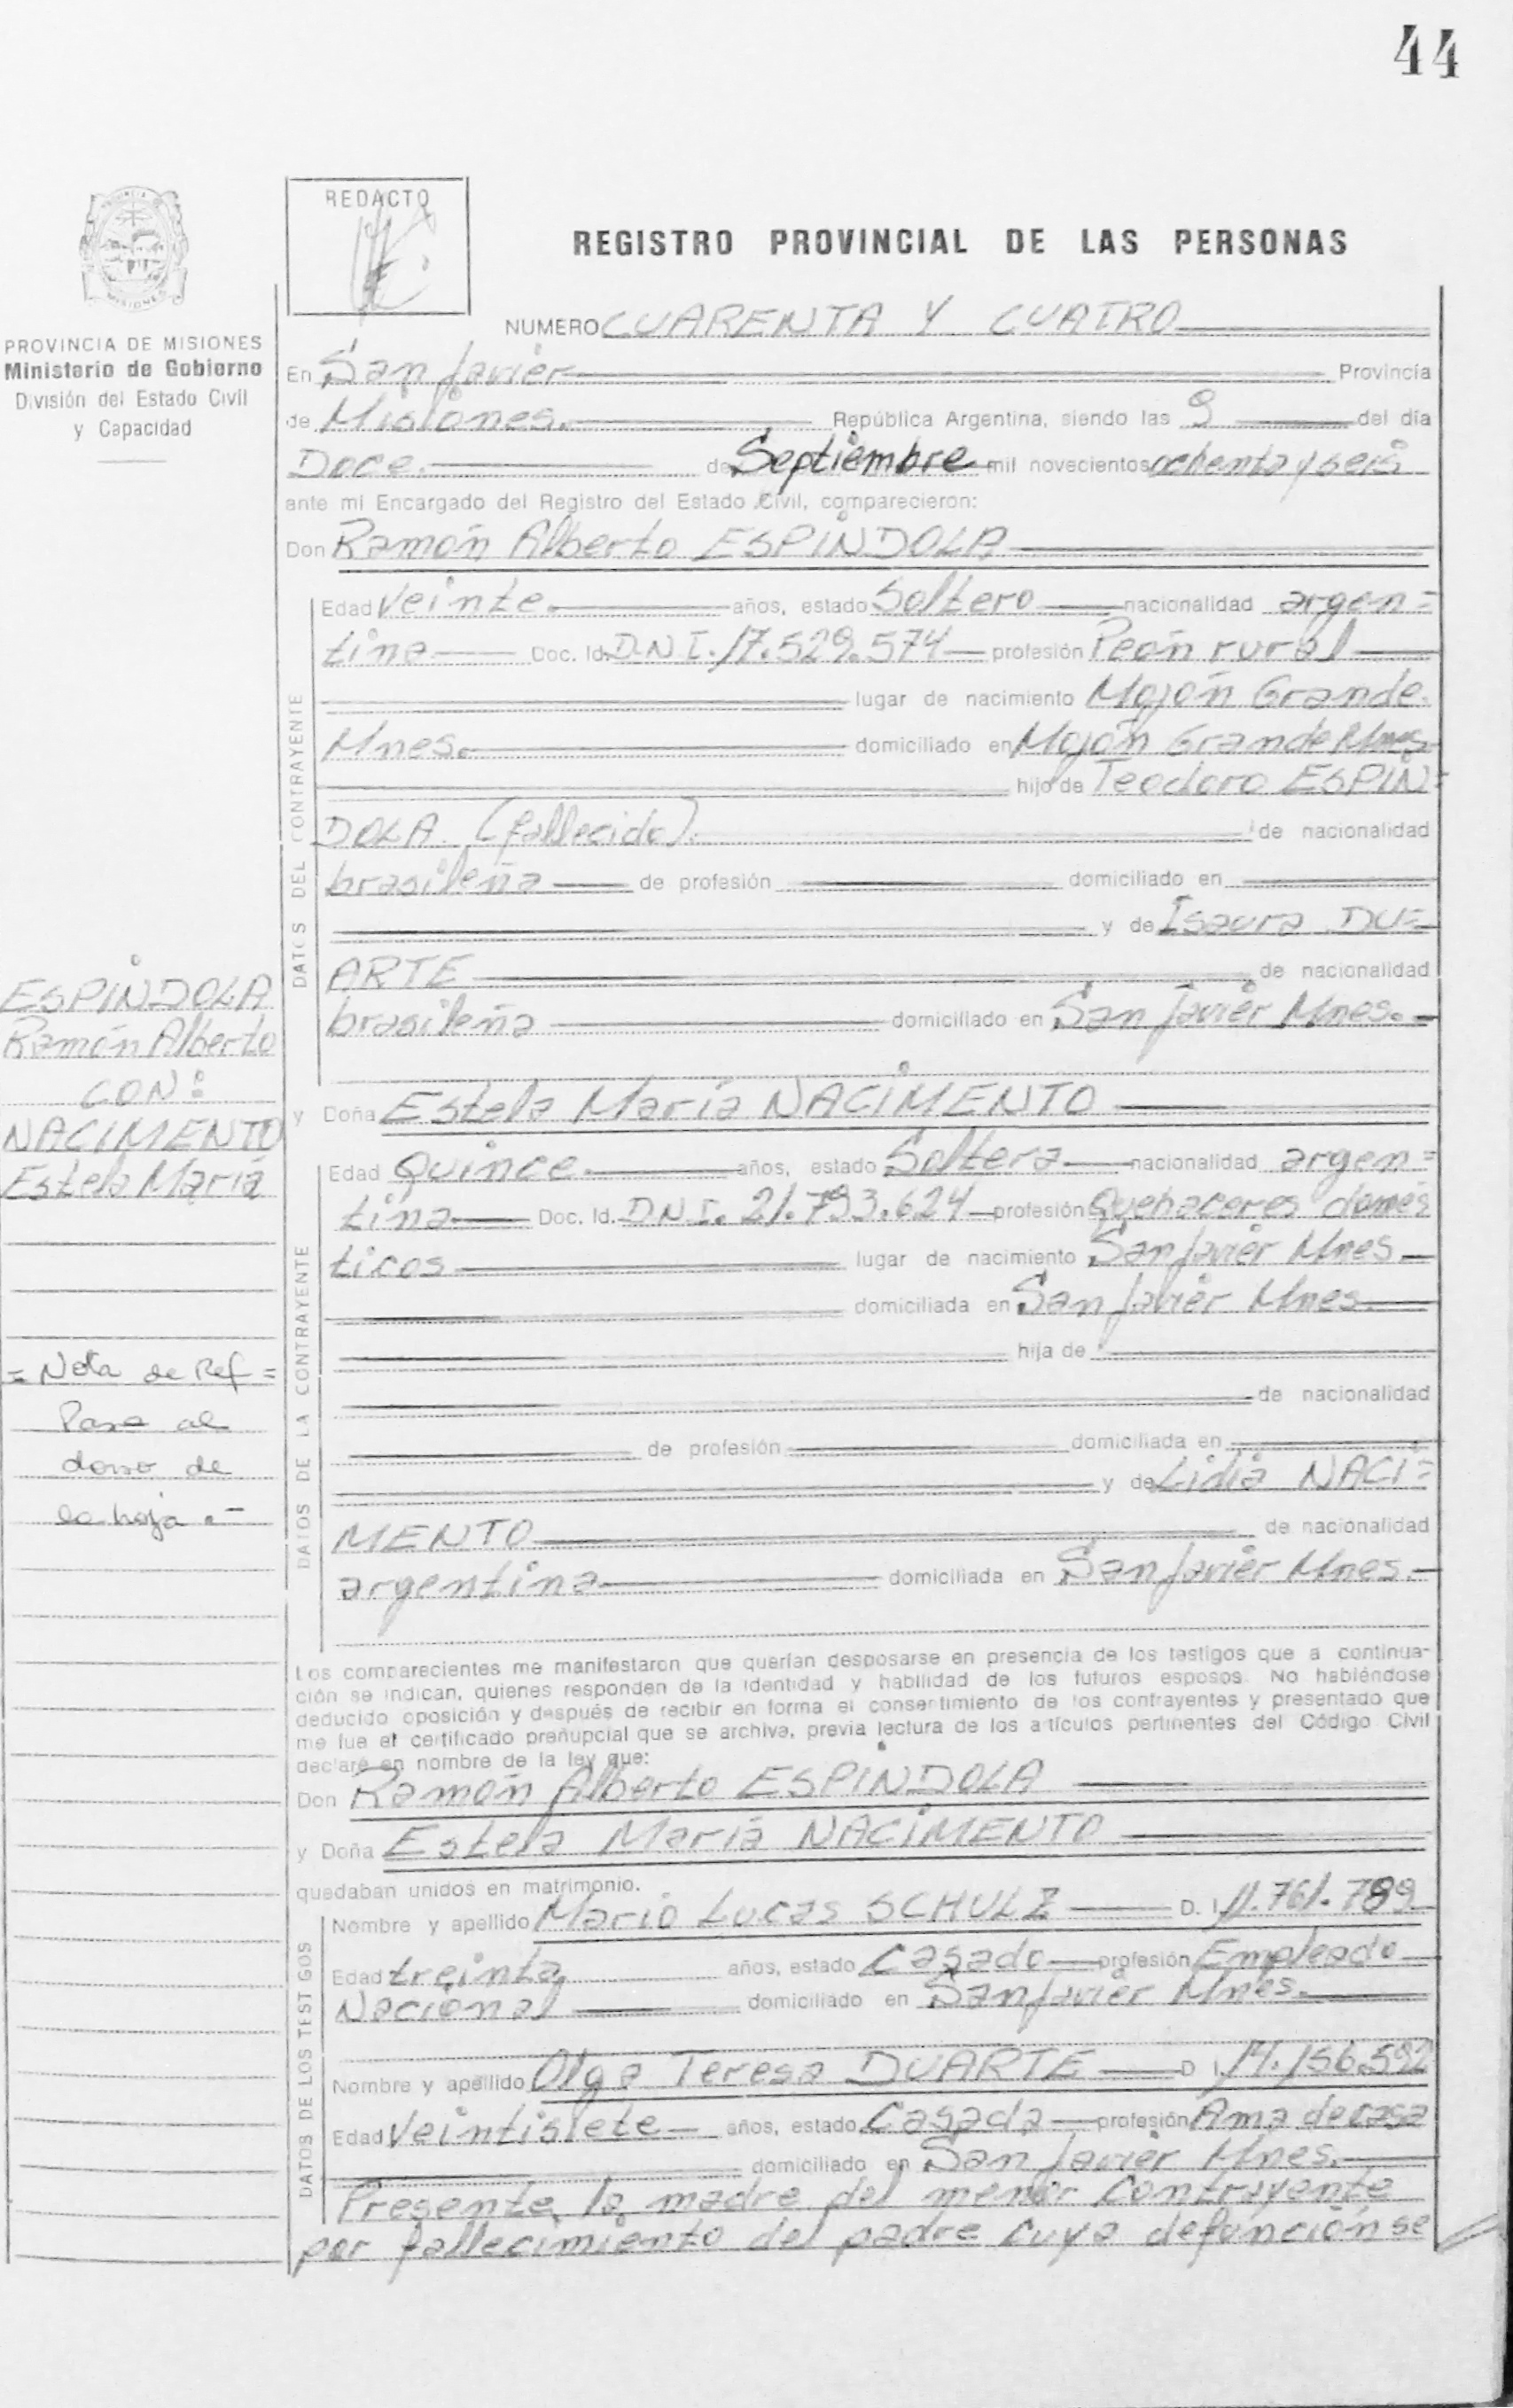 44
REDACTO
REGISTRO PROVINCIAL DE LAS PERSONAS
PROVINCIA DE MISIONES
Ministerio de Gobierno
División del Estado Civil
y Capacidad
NUMERO CUARENTA Y CUATRO
En San Javier Provincia
de Misiones. República Argentina, siendo las 9 del día
Doce. de Septiembre mil novecientos ochenta y seis
ante mi Encargado del Registro del Estado Civil, comparecieron:
Don Ramón Alberto ESPINDOLA
DATOS DEL CONTRAYENTE
Edad Veinte. años, estado Soltero nacionalidad argen=
tina Doc. Id. D.N.I. 17.529.574 profesión Peón rural
lugar de nacimiento Mojón Grande.
Mnes. domiciliado en Mojón Grande Mnes
hijo de Teodoro ESPIN=
DOLA (fallecido). de nacionalidad
brasileña de profesión domiciliado en
y de Isaura DU=
ARTE de nacionalidad
brasileña domiciliado en San Javier Mnes.
ESPINDOLA
Ramón Alberto
CON:
NACIMENTO
Estela María
y Doña Estela María NACIMENTO
DATOS DE LA CONTRAYENTE
Edad Quince. años, estado Soltera nacionalidad argen=
tina Doc. Id. D.N.I. 21.793.624 profesión Quehaceres domés
ticos lugar de nacimiento San Javier Mnes.
domiciliada en San Javier Mnes.
hija de
de nacionalidad
de profesión domiciliada en
y de Lidia NACI=
MENTO de nacionalidad
argentina domiciliada en San Javier Mnes.
= Nota de Ref =
Pase al
dorso de
la hoja .-
Los comparecientes me manifestaron que querían desposarse en presencia de los testigos que a continua-
ción se indican, quienes responden de la identidad y habilidad de los futuros esposos. No habiéndose
deducido oposición y después de recibir en forma el consentimiento de los contrayentes y presentado que
me fue el certificado prenupcial que se archiva, previa lectura de los artículos pertinentes del Código Civil
declaré en nombre de la ley que:
Don Ramón Alberto ESPINDOLA
y Doña Estela María NACIMENTO
quedaban unidos en matrimonio.
DATOS DE LOS TESTIGOS
Nombre y apellido Mario Lucas SCHULZ D. I. 11.761.789
Edad treinta años, estado Casado profesión Empleado
Nacional domiciliado en San Javier Mnes.
Nombre y apellido Olga Teresa DUARTE D. I. 14.156.592
Edad Veintisiete años, estado Casada profesión Ama de casa
domiciliado en San Javier Mnes.
Presente la madre del menor contrayente
por fallecimiento del padre cuya defunción se